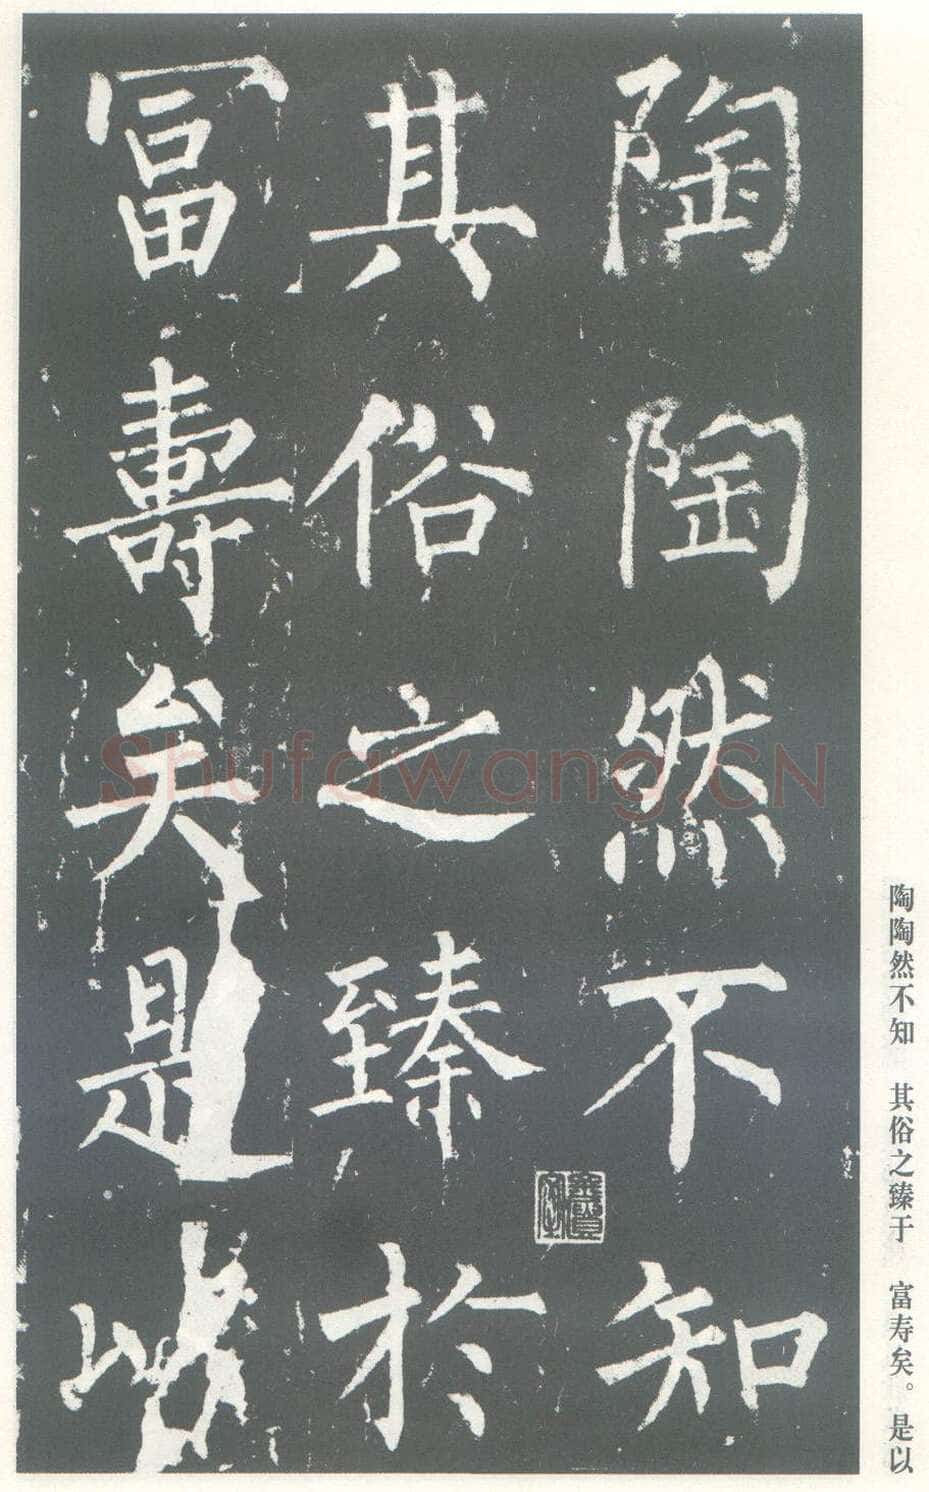 陶陶然不知
其俗之臻於
冨壽矣是以
陶陶然不知 其俗之臻于 富寿矣。是以
Shufawang.CN